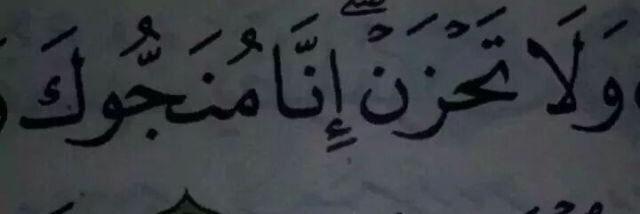 وَلَا تَحْزَنْ ۖ إِنَّا مُنَجُّوكَ